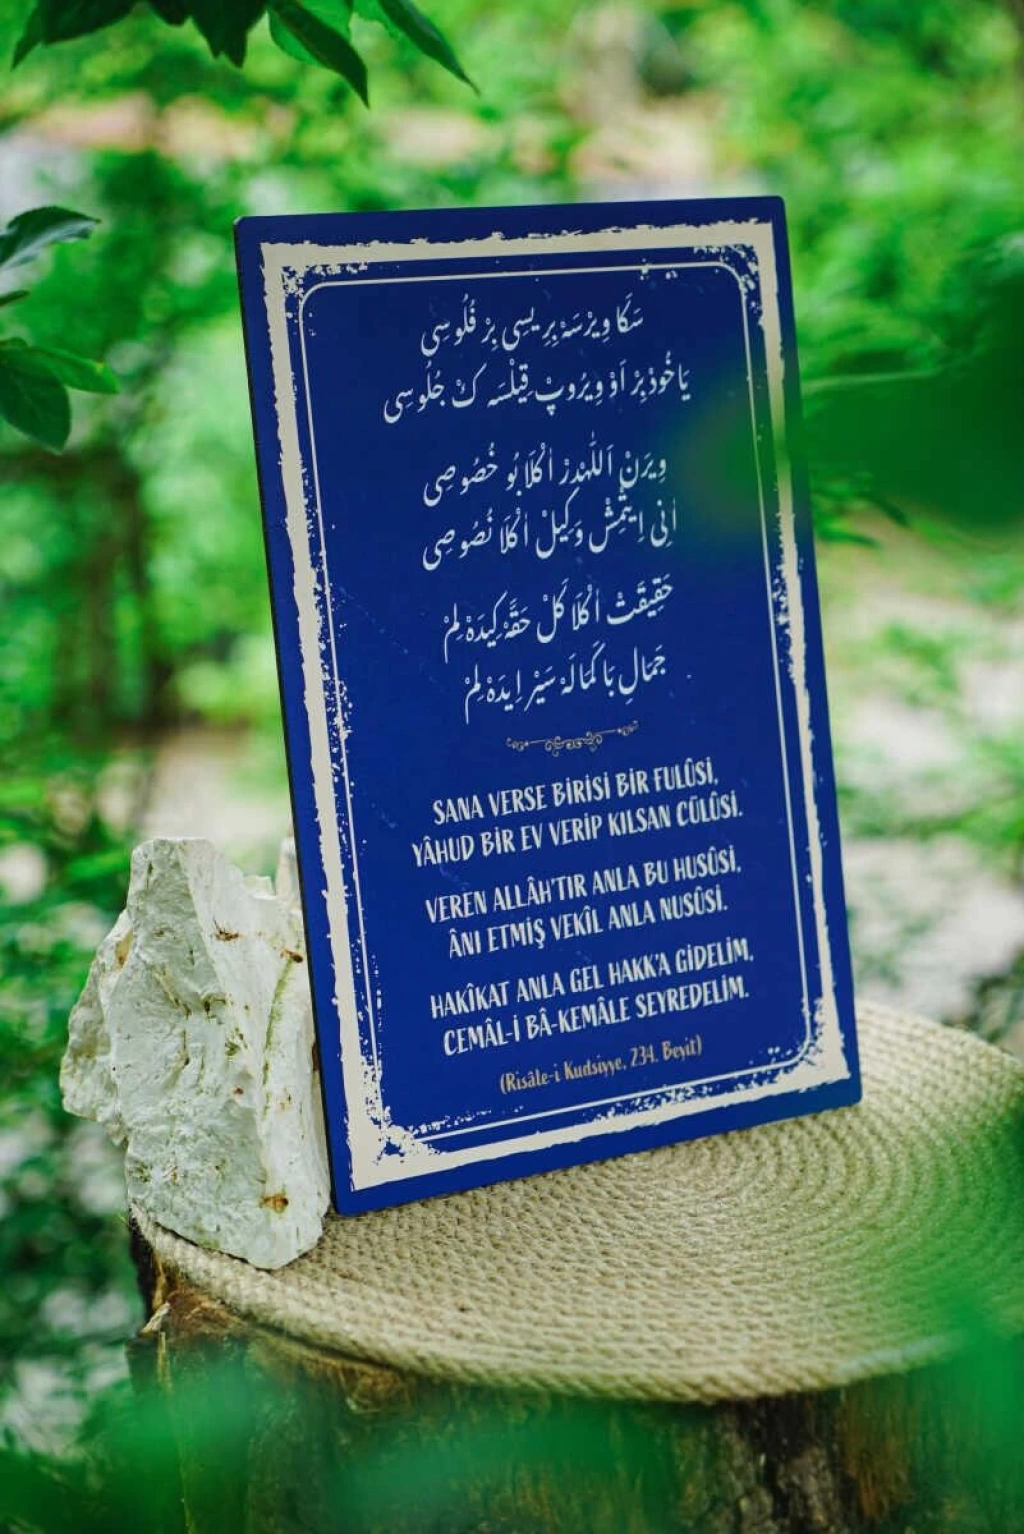 سَكَا وِيرْسَهْ بِرِيسِی بِرْ فُلُوسِی
يَاخُودْ بِرْ اَوْ وِيرُوپْ قِيلْسَه كْ جُلُوسِی
وِيرَنْ اَللّٰهْدِرْ اٰكْلَا بُو خُصُوصِی
اٰنِی اِيتْمِشْ وَكِيلْ اٰكْلَا نُصُوصِی
حَقِيقَتْ اٰكْلَا كَلْ حَقَّه كِيدَهْ لِمْ
جَمَالِ بَا كَمَالَهْ سَيْرْ اِيدَهْ لِمْ
SANA VERSE BİRİSİ BİR FULÛSİ,
YÂHUD BİR EV VERİP KILSAN CÜLÛSİ.
VEREN ALLÂH'TIR ANLA BU HUSÛSİ,
ÂNI ETMİŞ VEKÎL ANLA NUSÛSİ.
HAKÎKAT ANLA GEL HAKK'A GİDELİM,
CEMÂL-İ BÂ-KEMÂLE SEYREDELİM.
(Risâle-i Kudsiyye, 234. Beyit)